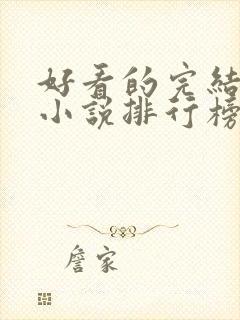 好看的完結
小說排行榜
詹家